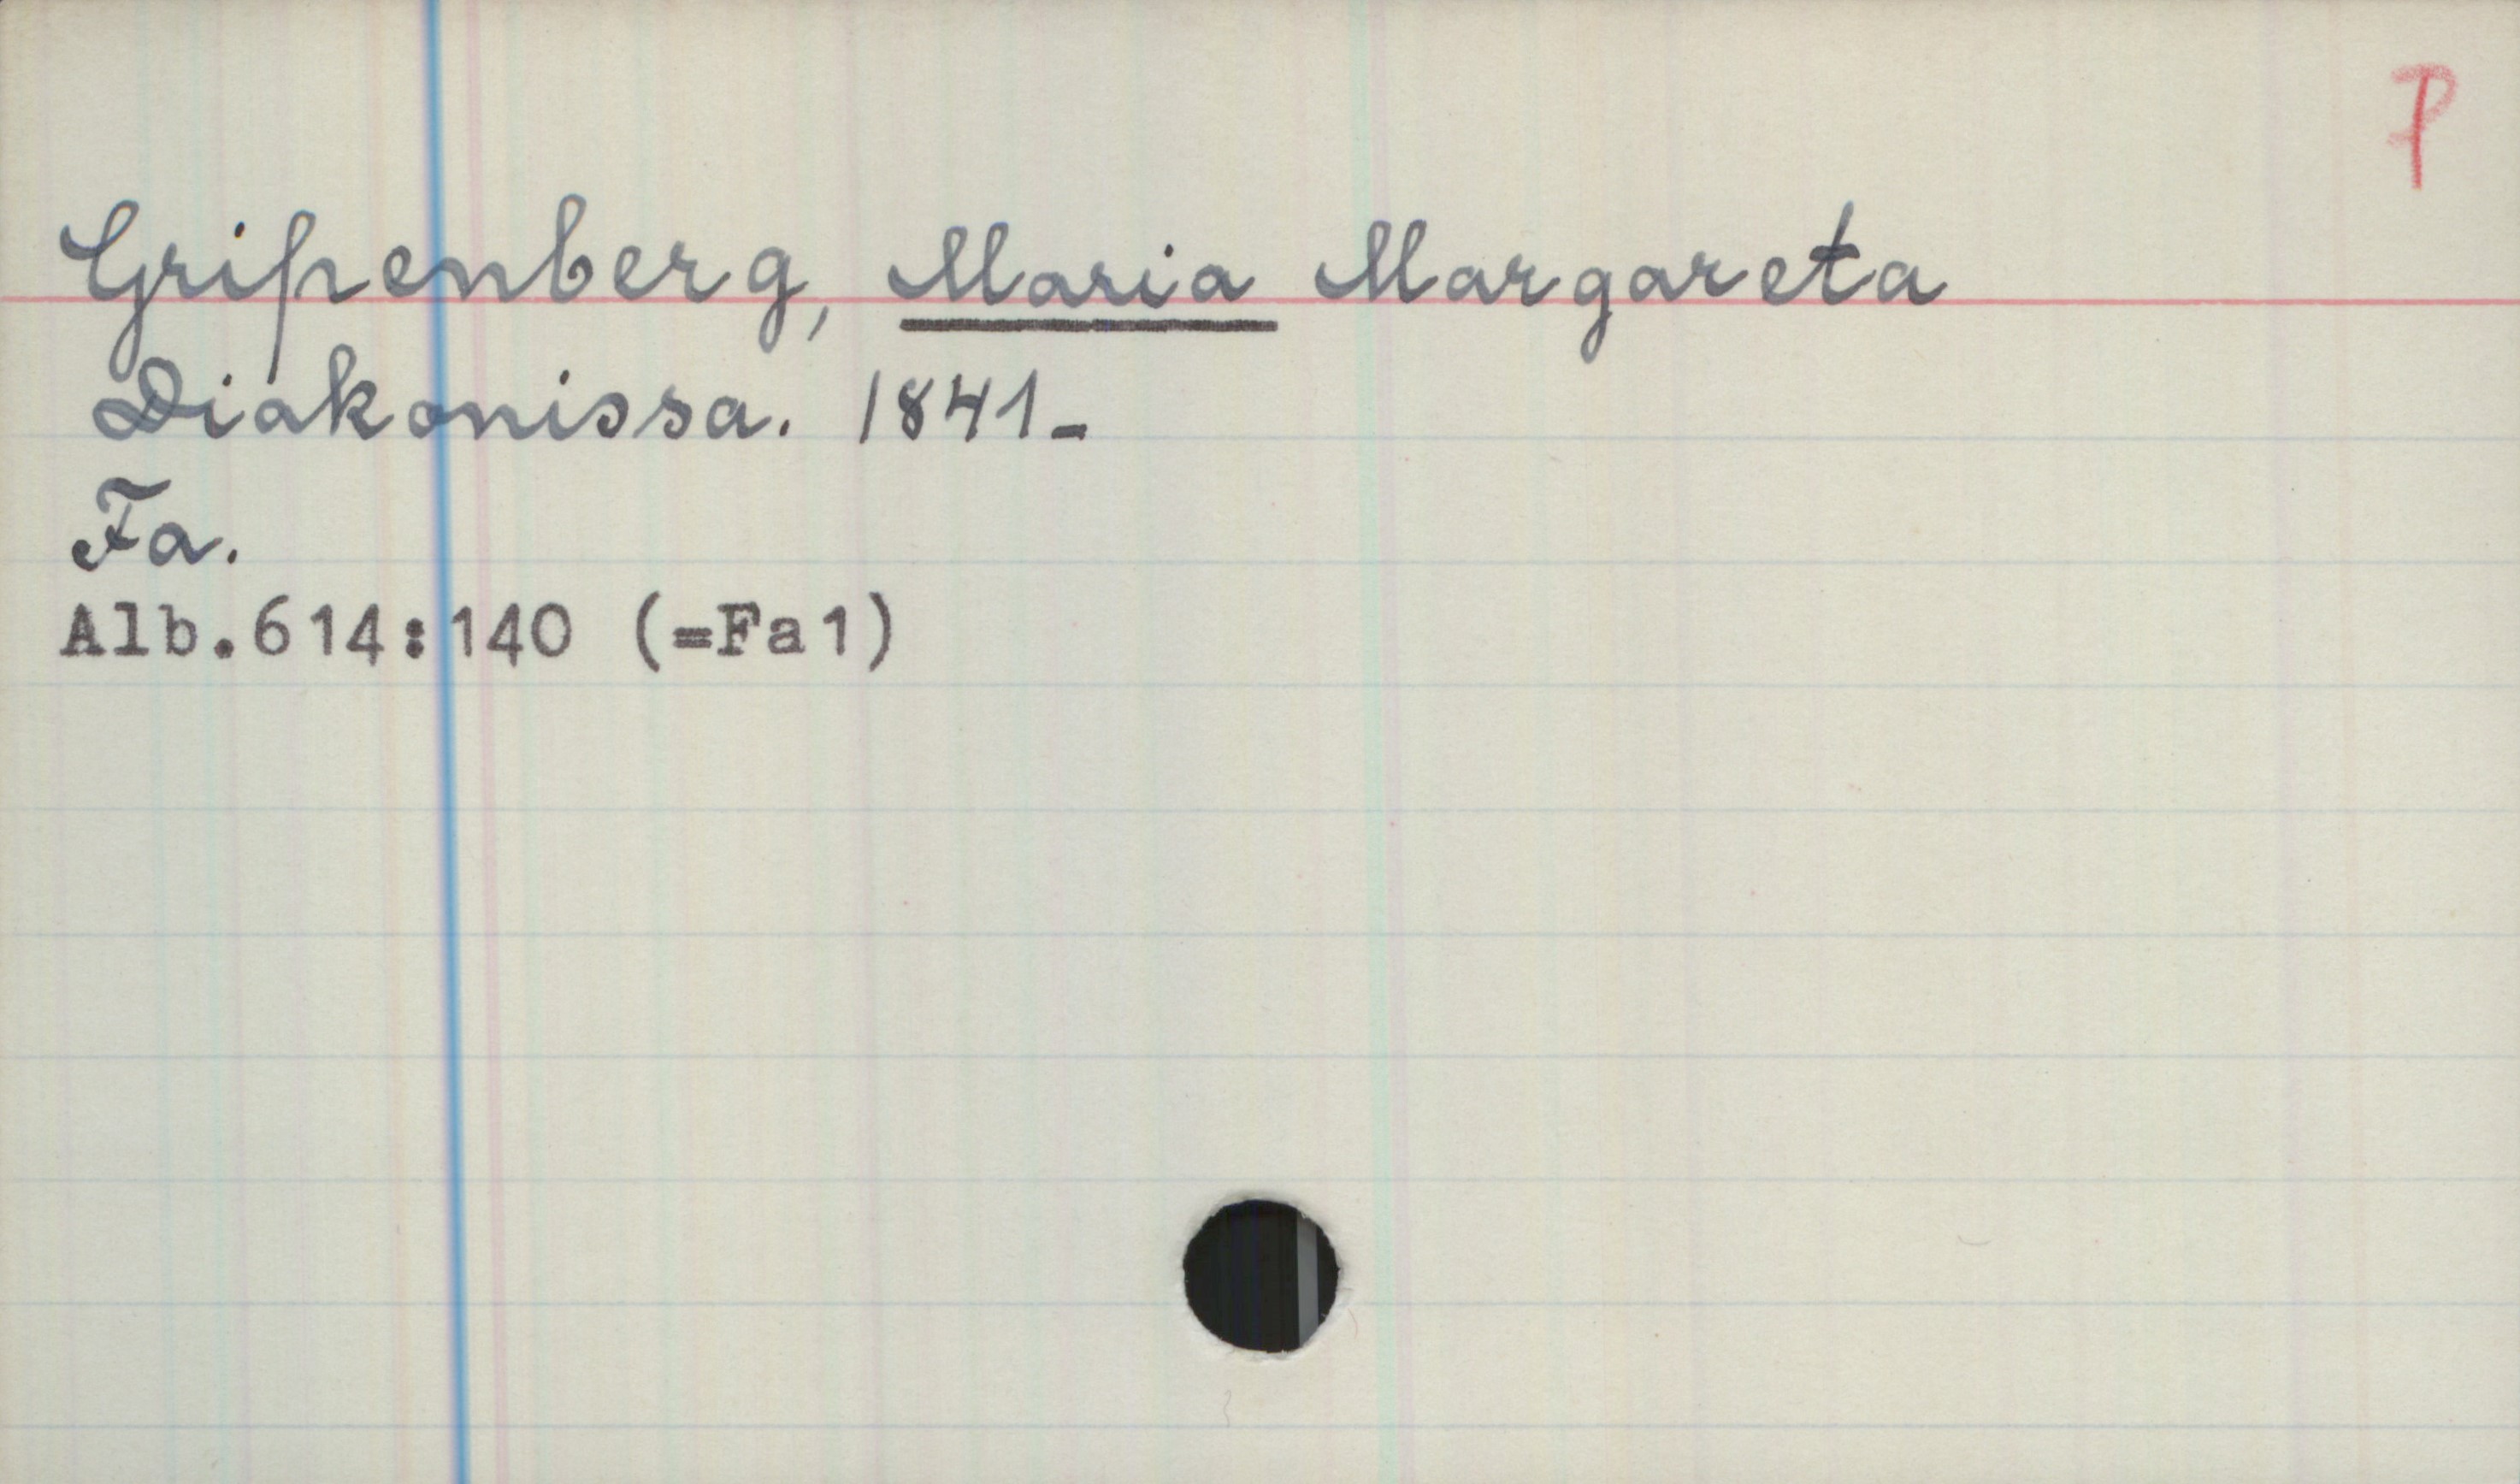 P
Gripenberg, Maria Margareta
Diakonissa. 1841-
Fa.
Alb.614:140 (=Fa1)